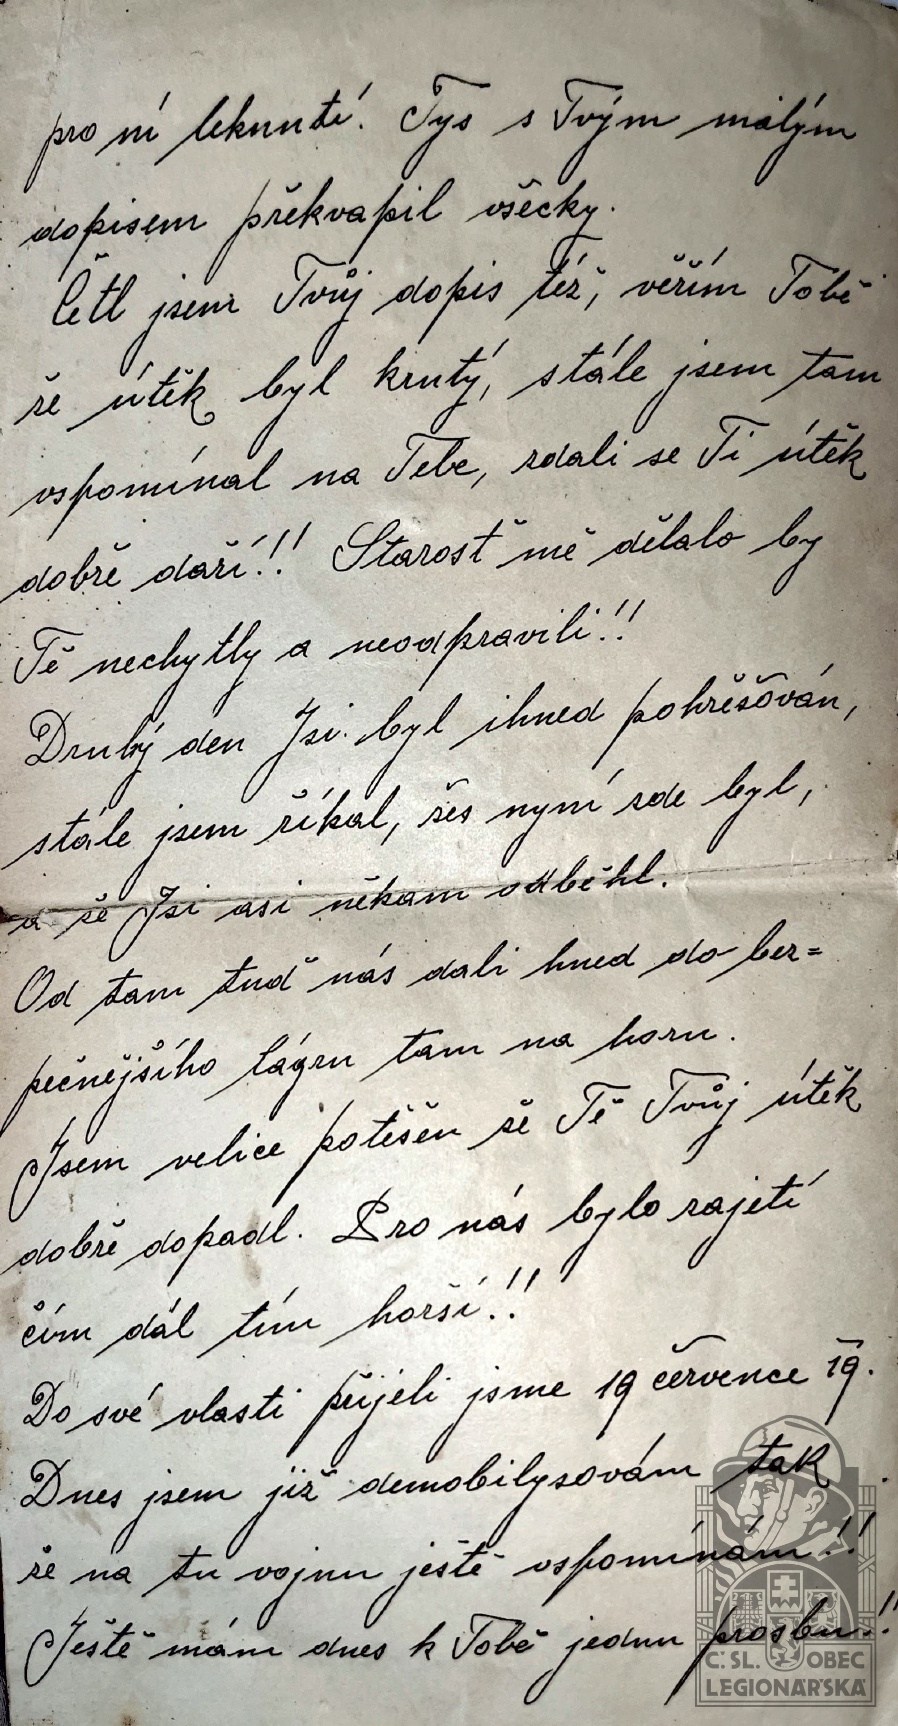 pro ní leknutí. Tys s Tvým malým
dopisem překvapil všecky.
Četl jsem Tvůj dopis též, věřím Tobě
že útěk byl krutý, stále jsem tam
vspomínal na Tebe, zdali se Ti útěk
dobře daří!! Starosť mě dělalo by
Tě nechytly a neodpravili!!
Druhý den Jsi byl ihned pohřěšován,
stále jsem říkal, žes nyní zde byl,
a že Jsi asi někam odběhl.
Od tam tuď nás dali hned do bez=
pečnějšího lágru tam na horu.
Jsem velice potěšen že Tě Tvůj útěk
dobře dopadl. Pro nás bylo zajetí
čím dál tím horší!!
Do své vlasti přijeli jsme 19 července 19.
Dnes jsem již demobilysovám tak
že na tu vojnu ještě vspomínám!!
Ještě mám dnes k Tobě jednu prosbu!!
Č. SL. OBEC
LEGIONÁŘSKÁ